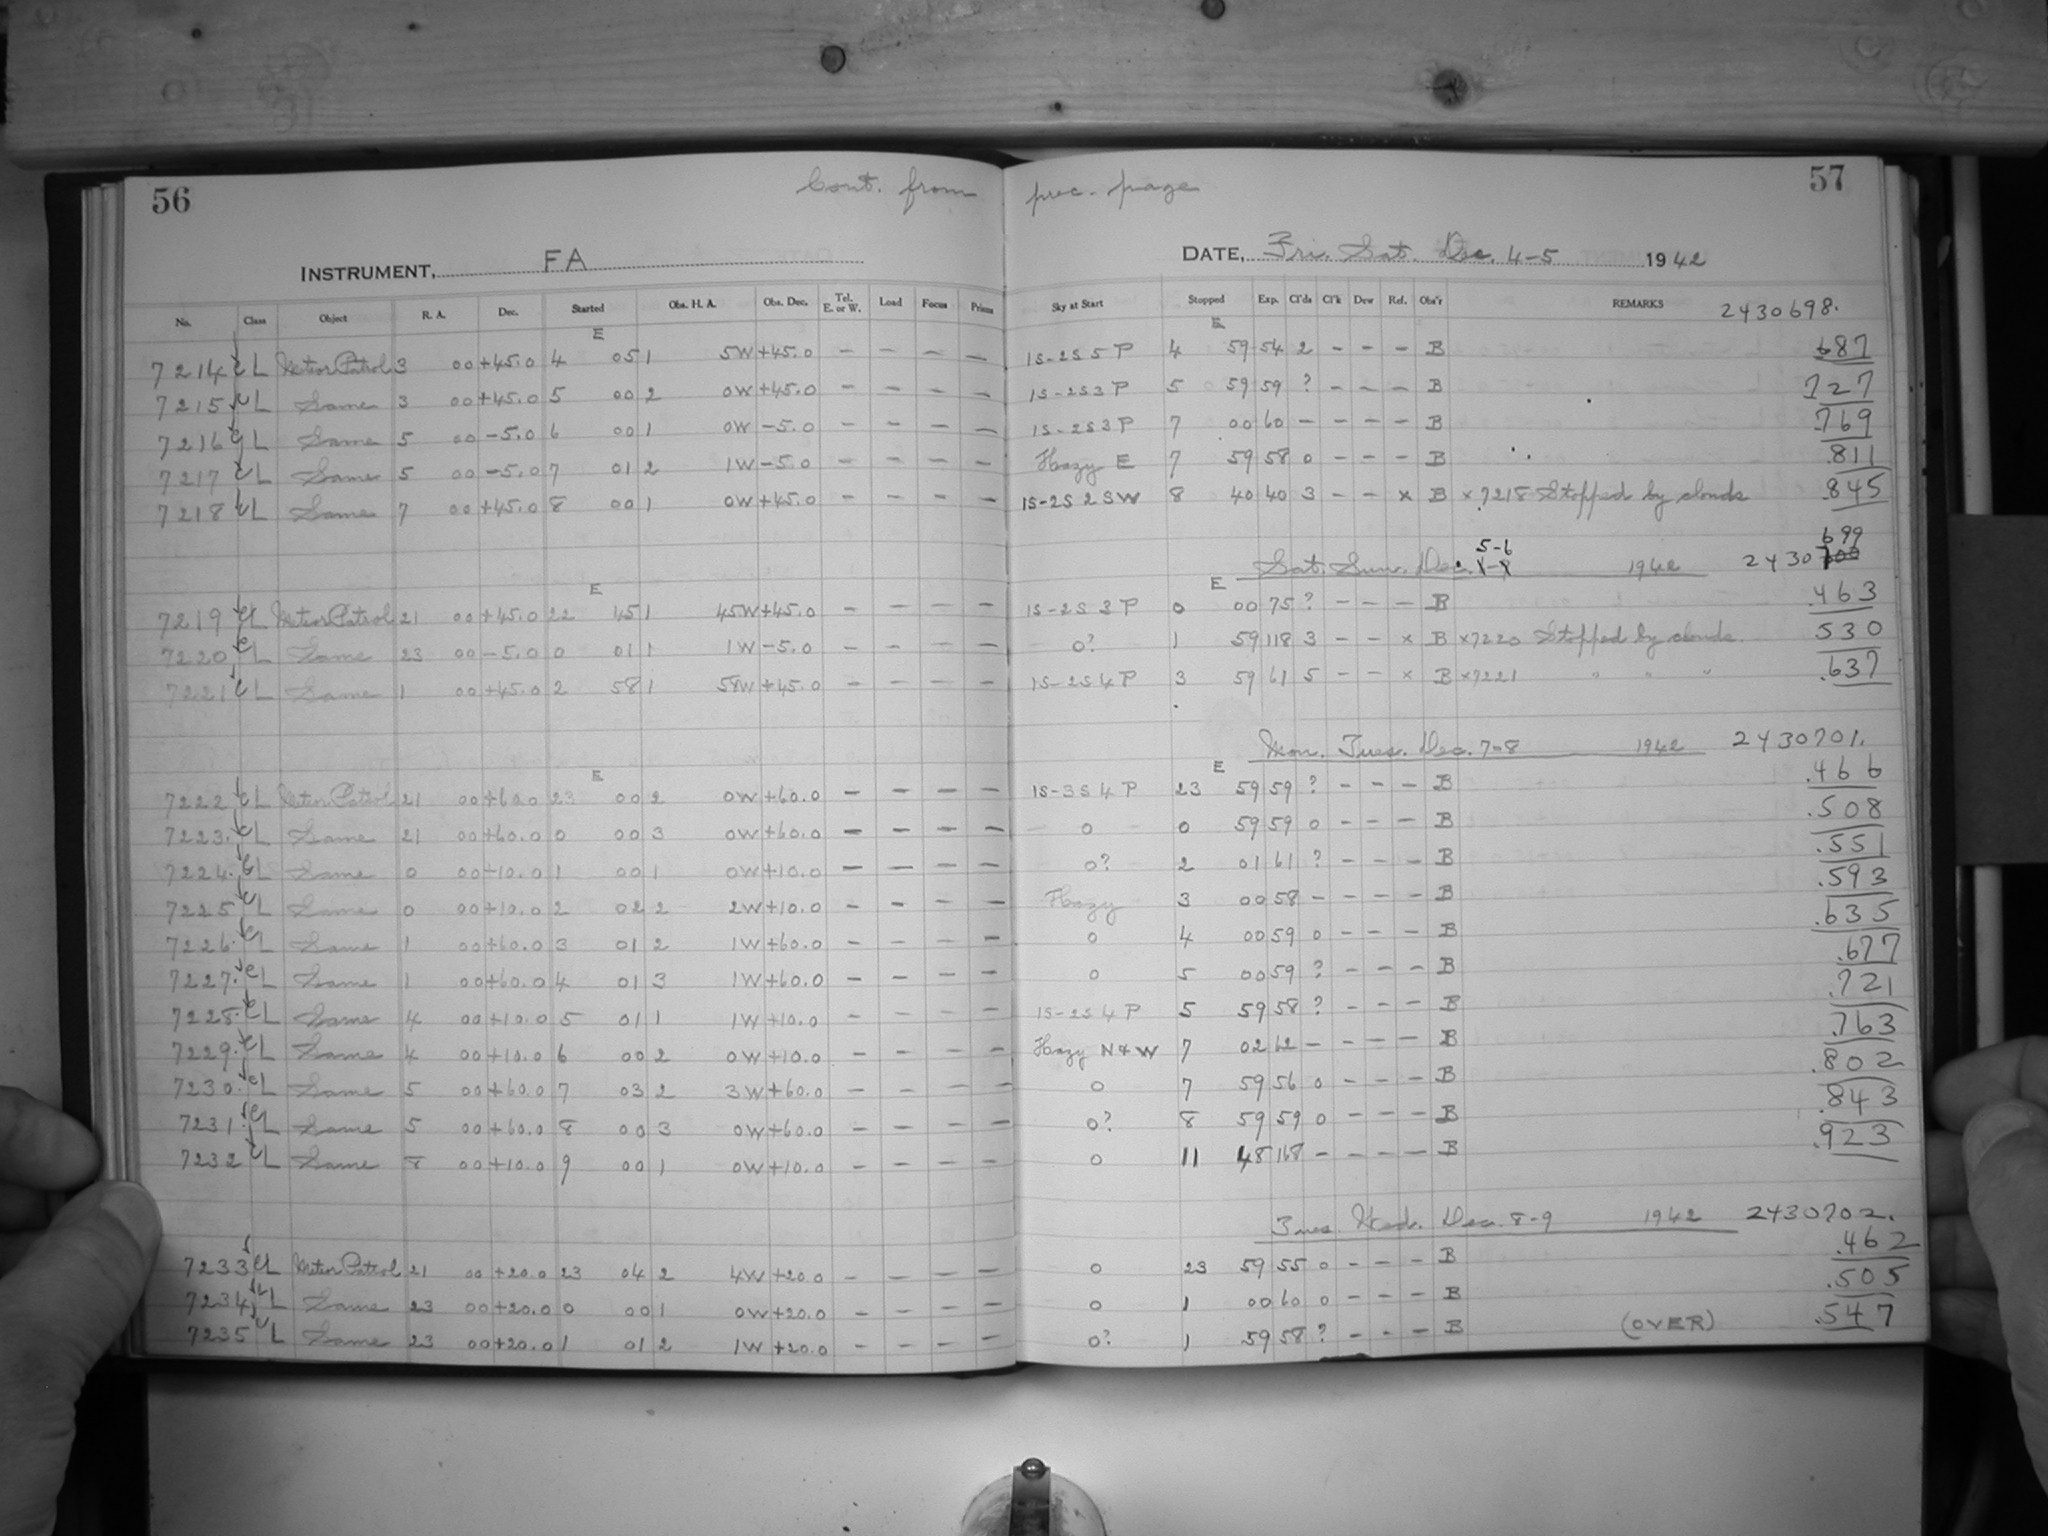 56
Cont. from prec. page
57
INSTRUMENT, FA
DATE, Fri. Sat. Dec. 4-5 1942
No. Class Object R. A. Dec. Started Obs. H. A. Obs. Dec. Tel. E. or W. Load Focus Prism Sky at Start Stopped Exp. Cl'ds Cl'k Dew Ref. Obs'r REMARKS 2430698.
E E
7214 L Meteor Patrol 3 00 +45.0 4 05 1 5W +45.0 - - - - 1S-2S 5 P 4 59 54 2 - - - B .687
7215 L Same 3 00 +45.0 5 00 2 0W +45.0 - - - - 1S-2S3 P 5 59 59 ? - - - B .727
7216 L Same 5 00 -5.0 6 00 1 0W -5.0 - - - - 1S-2S3 P 7 00 60 - - - - B .769
7217 L Same 5 00 -5.0 7 01 2 1W -5.0 - - - - Hazy E 7 59 58 0 - - - B .811
7218 L Same 7 00 +45.0 8 00 1 0W +45.0 - - - - 1S-2S 2 SW 8 40 40 3 - - x B x 7218 Stopped by clouds .845
Sat. Sun. Dec. 5-6 1942 2430 699
E E
7219 L Meteor Patrol 21 00 +45.0 22 45 1 45W +45.0 - - - - 1S-2S 3 P 0 00 75 ? - - - B .463
7220 L Same 23 00 -5.0 0 01 1 1W -5.0 - - - - 0? 1 59 118 3 - - x B x7220 Stopped by clouds. 530
7221 L Same 1 00 +45.0 2 58 1 58W +45.0 - - - - 1S-2S4 P 3 59 61 5 - - x B x7221 " " " .637
Mon. Tues. Dec. 7-8 1942 2430701.
E E
7222 L Meteor Patrol 21 00 +60.0 23 00 2 0W +60.0 - - - - 1S-3S 4 P 23 59 59 ? - - - B .466
7223. L Same 21 00 +60.0 0 00 3 0W +60.0 - - - - 0 0 59 59 0 - - - B .508
7224. L Same 0 00 +10.0 1 00 1 0W +10.0 - - - - 0? 2 01 61 ? - - - B .551
7225 L Same 0 00 +10.0 2 02 2 2W +10.0 - - - - Hazy 3 00 58 - - - - B .593
7226. L Same 1 00 +60.0 3 01 2 1W +60.0 - - - - 0 4 00 59 0 - - - B .635
7227. L Same 1 00 +60.0 4 01 3 1W +60.0 - - - - 0 5 00 59 ? - - - B .677
7228. L Same 4 00 +10.0 5 01 1 1W +10.0 - - - - 1S-2S 4 P 5 59 58 ? - - - B .721
7229. L Same 4 00 +10.0 6 00 2 0W +10.0 - - - - Hazy N & W 7 02 62 - - - - B .763
7230. L Same 5 00 +60.0 7 03 2 3W +60.0 - - - - 0 7 59 56 0 - - - B .802
7231. L Same 5 00 +60.0 8 00 3 0W +60.0 - - - - 0? 8 59 59 0 - - - B .843
7232 L Same 8 00 +10.0 9 00 1 0W +10.0 - - - - 0 11 48 168 - - - - B .923
Tues. Wed. Dec. 8-9 1942 2430702.
7233 L Meteor Patrol 21 00 +20.0 23 04 2 4W +20.0 - - - - 0 23 59 55 0 - - - B .462
7234 L Same 23 00 +20.0 0 00 1 0W +20.0 - - - - 0 1 00 60 0 - - - B .505
7235 L Same 23 00 +20.0 1 01 2 1W +20.0 - - - - 0? 1 59 58 ? - - - B (OVER) .547